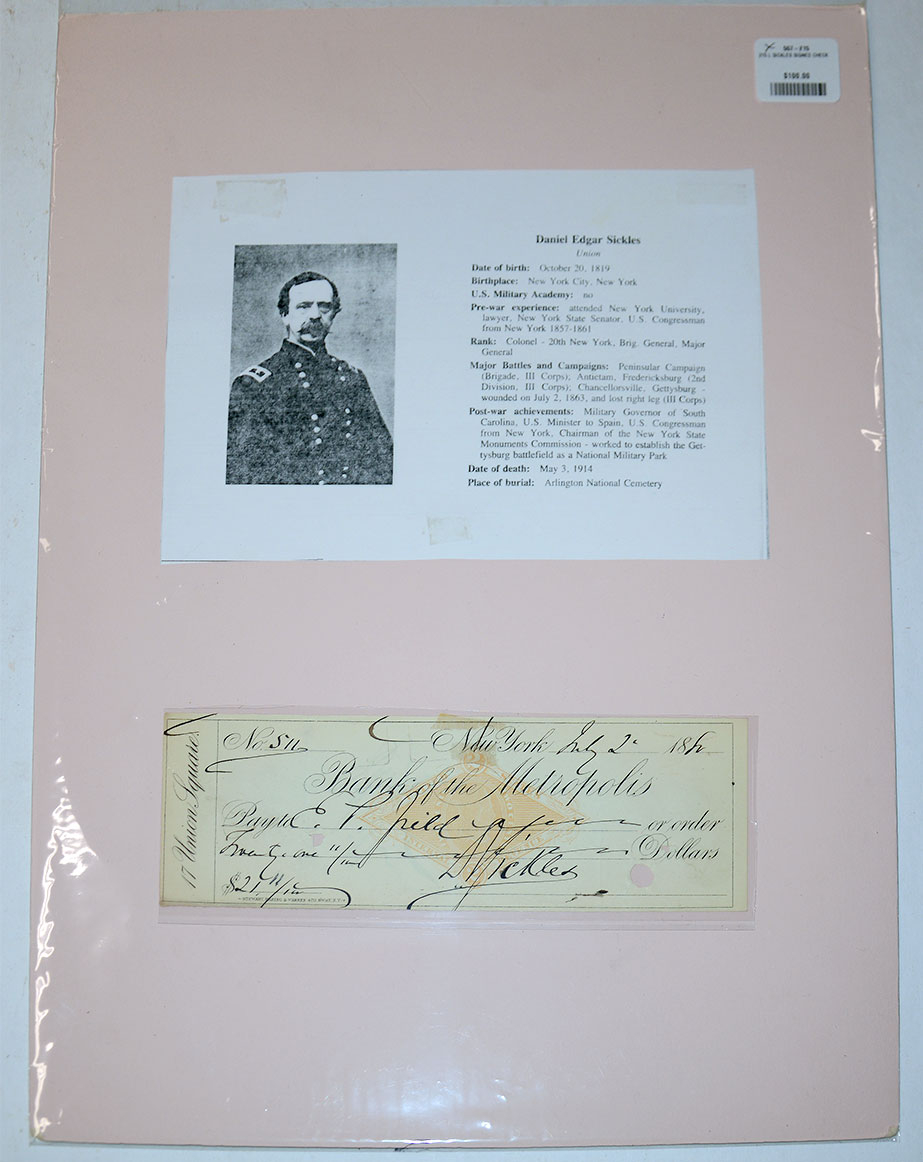 DAN SICKLES SIGNED CHECK
Daniel Edgar Sickles
Union
Date of birth: October 20, 1819
Birthplace: New York City, New York
U.S. Military Academy: no
Pre-war experience: attended New York University,
lawyer, New York State Senator, U.S. Congressman
from New York 1857-1861
Rank: Colonel - 20th New York, Brig. General, Major
General
Major Battles and Campaigns: Peninsular Campaign
(Brigade, III Corps); Antietam, Fredericksburg (2nd
Division, III Corps); Chancellorsville, Gettysburg -
wounded on July 2, 1863, and lost right leg (III Corps)
Post-war achievements: Military Governor of South
Carolina, U.S. Minister to Spain, U.S. Congressman
from New York, Chairman of the New York State
Monuments Commission - worked to establish the Get-
tysburg battlefield as a National Military Park
Date of death: May 3, 1914
Place of burial: Arlington National Cemetery
17 Union Square
No. New York July 2 18
Bank of the Metropolis
Pay to E. Field or order
Twenty one Dollars
DSickles
$21